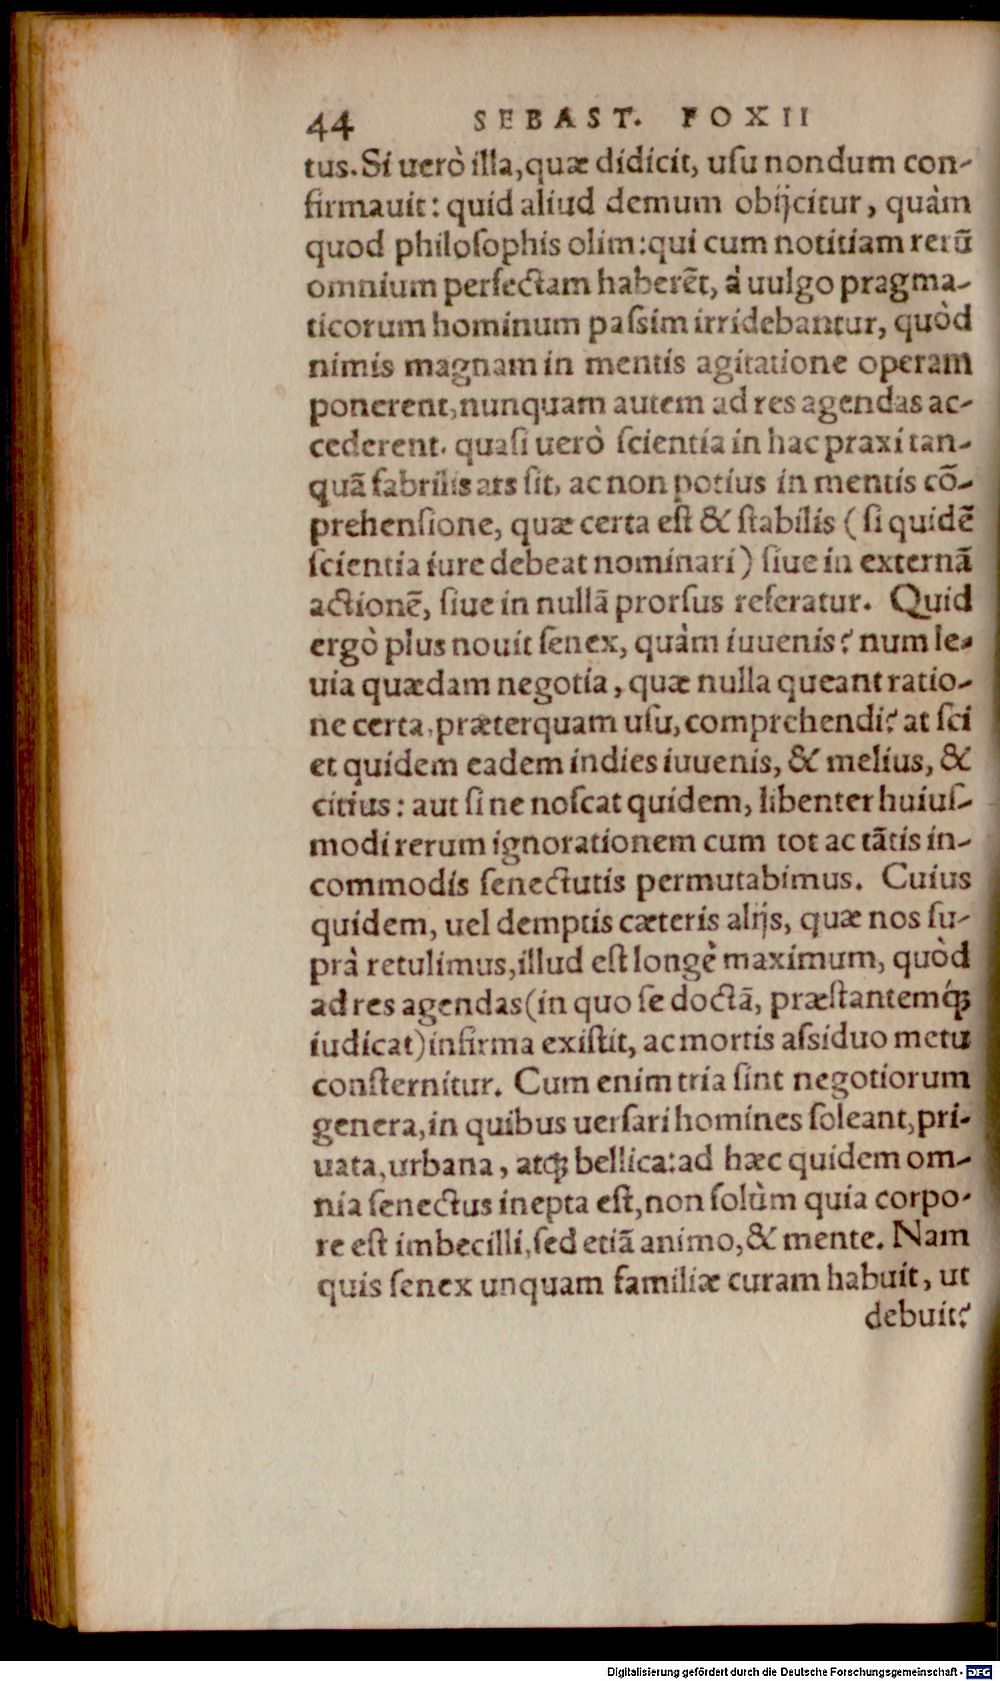 44 SEBAST. FOXII
tus. Si uerò illa, quæ didicit, uſu nondum con-
firmauit: quid aliud demum obijcitur, quàm
quod philoſophis olim: qui cum notitiam rerũ
omnium perfectam haberẽt, à uulgo pragma-
ticorum hominum paſsim irridebantur, quòd
nimis magnam in mentis agitatione operam
ponerent, nunquam autem ad res agendas ac-
cederent. quaſi uerò ſcientia in hac praxi tan-
quã fabrilis ars ſit, ac non potius in mentis cõ-
prehenſione, quæ certa eſt & ſtabilis (ſi quidẽ
ſcientia iure debeat nominari) ſiue in externã
actionẽ, ſiue in nullã prorſus referatur. Quid
ergò plus nouit ſenex, quàm iuuenis? num le-
uia quædam negotia, quæ nulla queant ratio-
ne certa, præterquam uſu, comprehendi? at ſci
et quidem eadem indies iuuenis, & melius, &
citius: aut ſi ne noſcat quidem, libenter huiuſ-
modi rerum ignorationem cum tot ac tãtis in-
commodis ſenectutis permutabimus. Cuius
quidem, uel demptis cæteris alijs, quæ nos ſu-
prà retulimus, illud eſt longè maximum, quòd
ad res agendas (in quo ſe doctã, præſtantemq́ꝫ
iudicat) infirma exiſtit, ac mortis aſsiduo metu
conſternitur. Cum enim tria ſint negotiorum
genera, in quibus uerſari homines ſoleant, pri-
uata, urbana, atqꝫ bellica: ad hæc quidem om-
nia ſenectus inepta eſt, non ſolùm quia corpo-
re eſt imbecilli, ſed etiã animo, & mente. Nam
quis ſenex unquam familiæ curam habuit, ut
debuit?
Digitalisierung gefördert durch die Deutsche Forschungsgemeinschaft - DFG